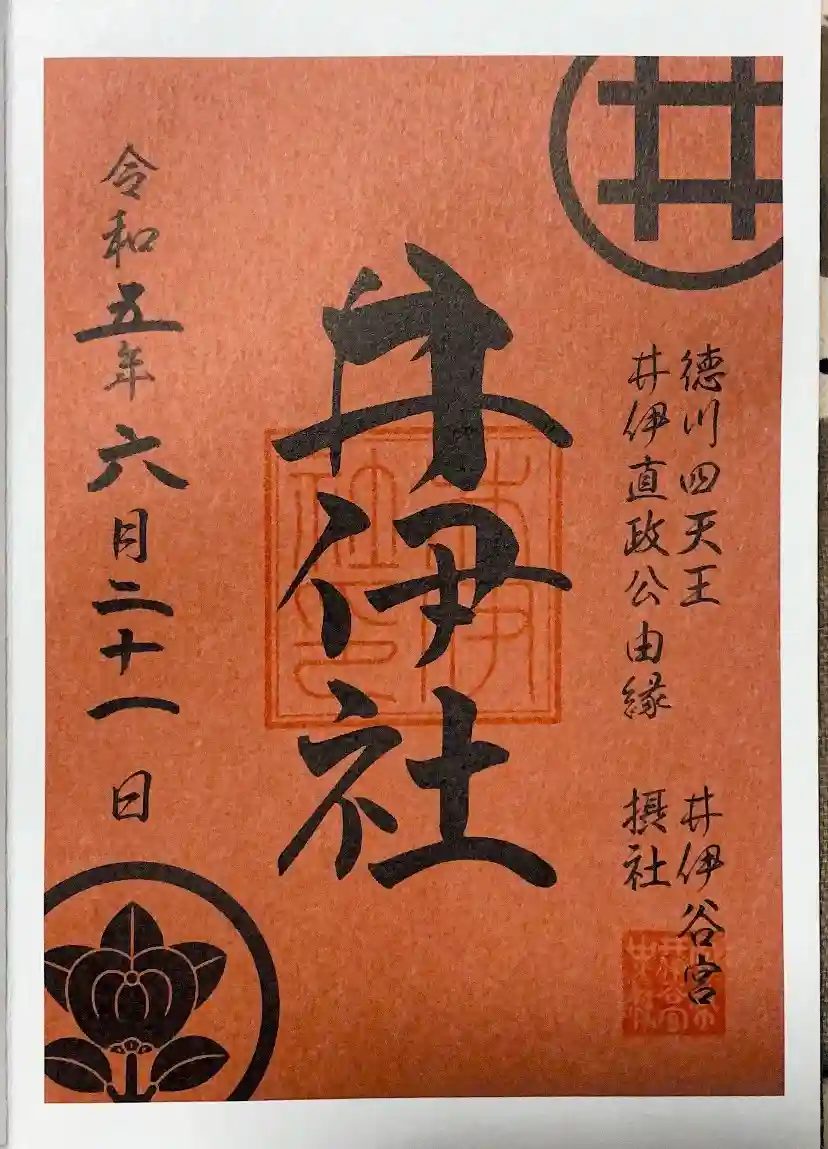 徳川四天王 井伊谷宮
井伊直政公由縁 摂社
井伊社
令和五年六月二十一日